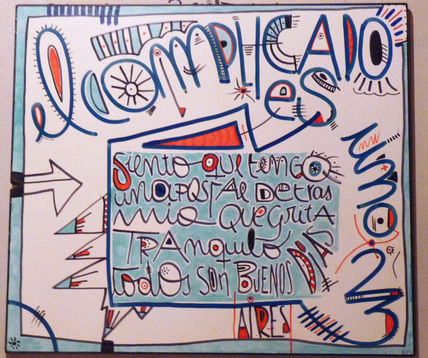 el COMPLICADO
ES
uno
siento que tengo
una postal detras
mio que grita
TRAnquilo
todos son Buenos DÍAS
AIRES